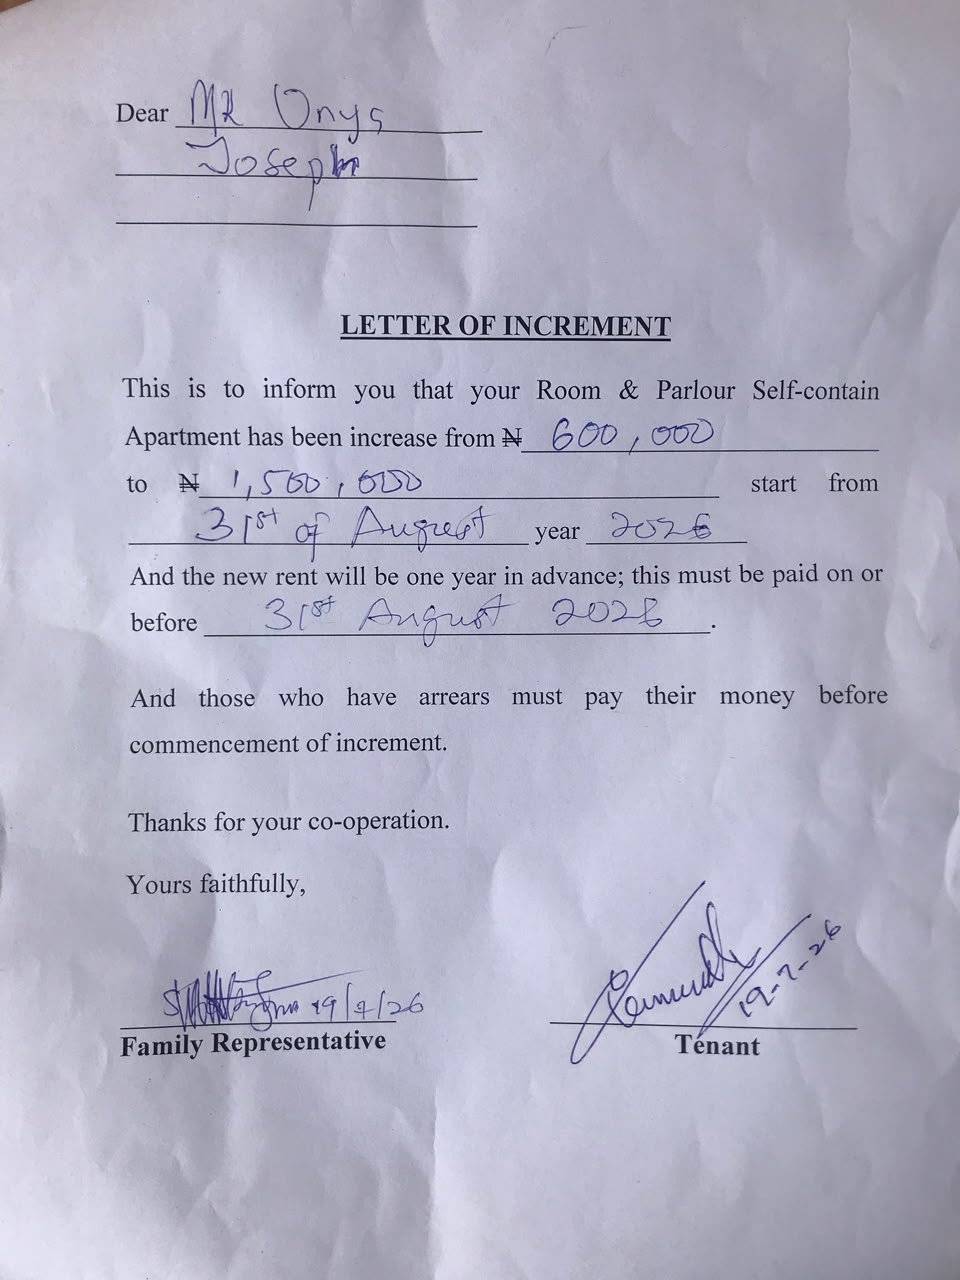 Dear MR Onys
Joseph
LETTER OF INCREMENT
This is to inform you that your Room & Parlour Self-contain
Apartment has been increase from ₦ 600,000
to ₦ 1,500,000 start from
31st of August year 2026
And the new rent will be one year in advance; this must be paid on or
before 31st August 2026.
And those who have arrears must pay their money before
commencement of increment.
Thanks for your co-operation.
Yours faithfully,
19/7/26
19-7-26
Family Representative
Ténant